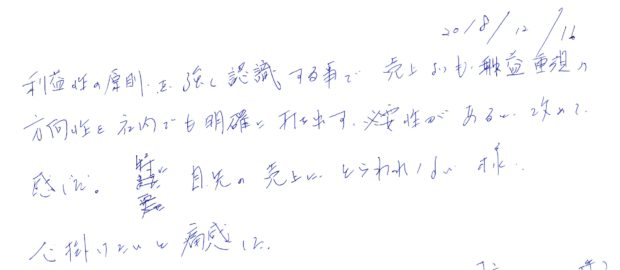 2018/12/16
利益性の原則を強く認識する事で売上よりも利益重視の
方向性を社内でも明確に打ち出す必要性があると改めて
感じた。特に目先の売上にとらわれない様
心掛けたいと痛感した。